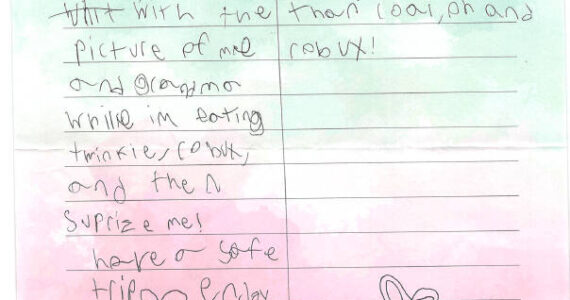 with the
picture of me
and grandma
whille im eating
twinkie, robux,
and then
suprize me!
have a safe
trip enjoy
than coal, oh and
robux!